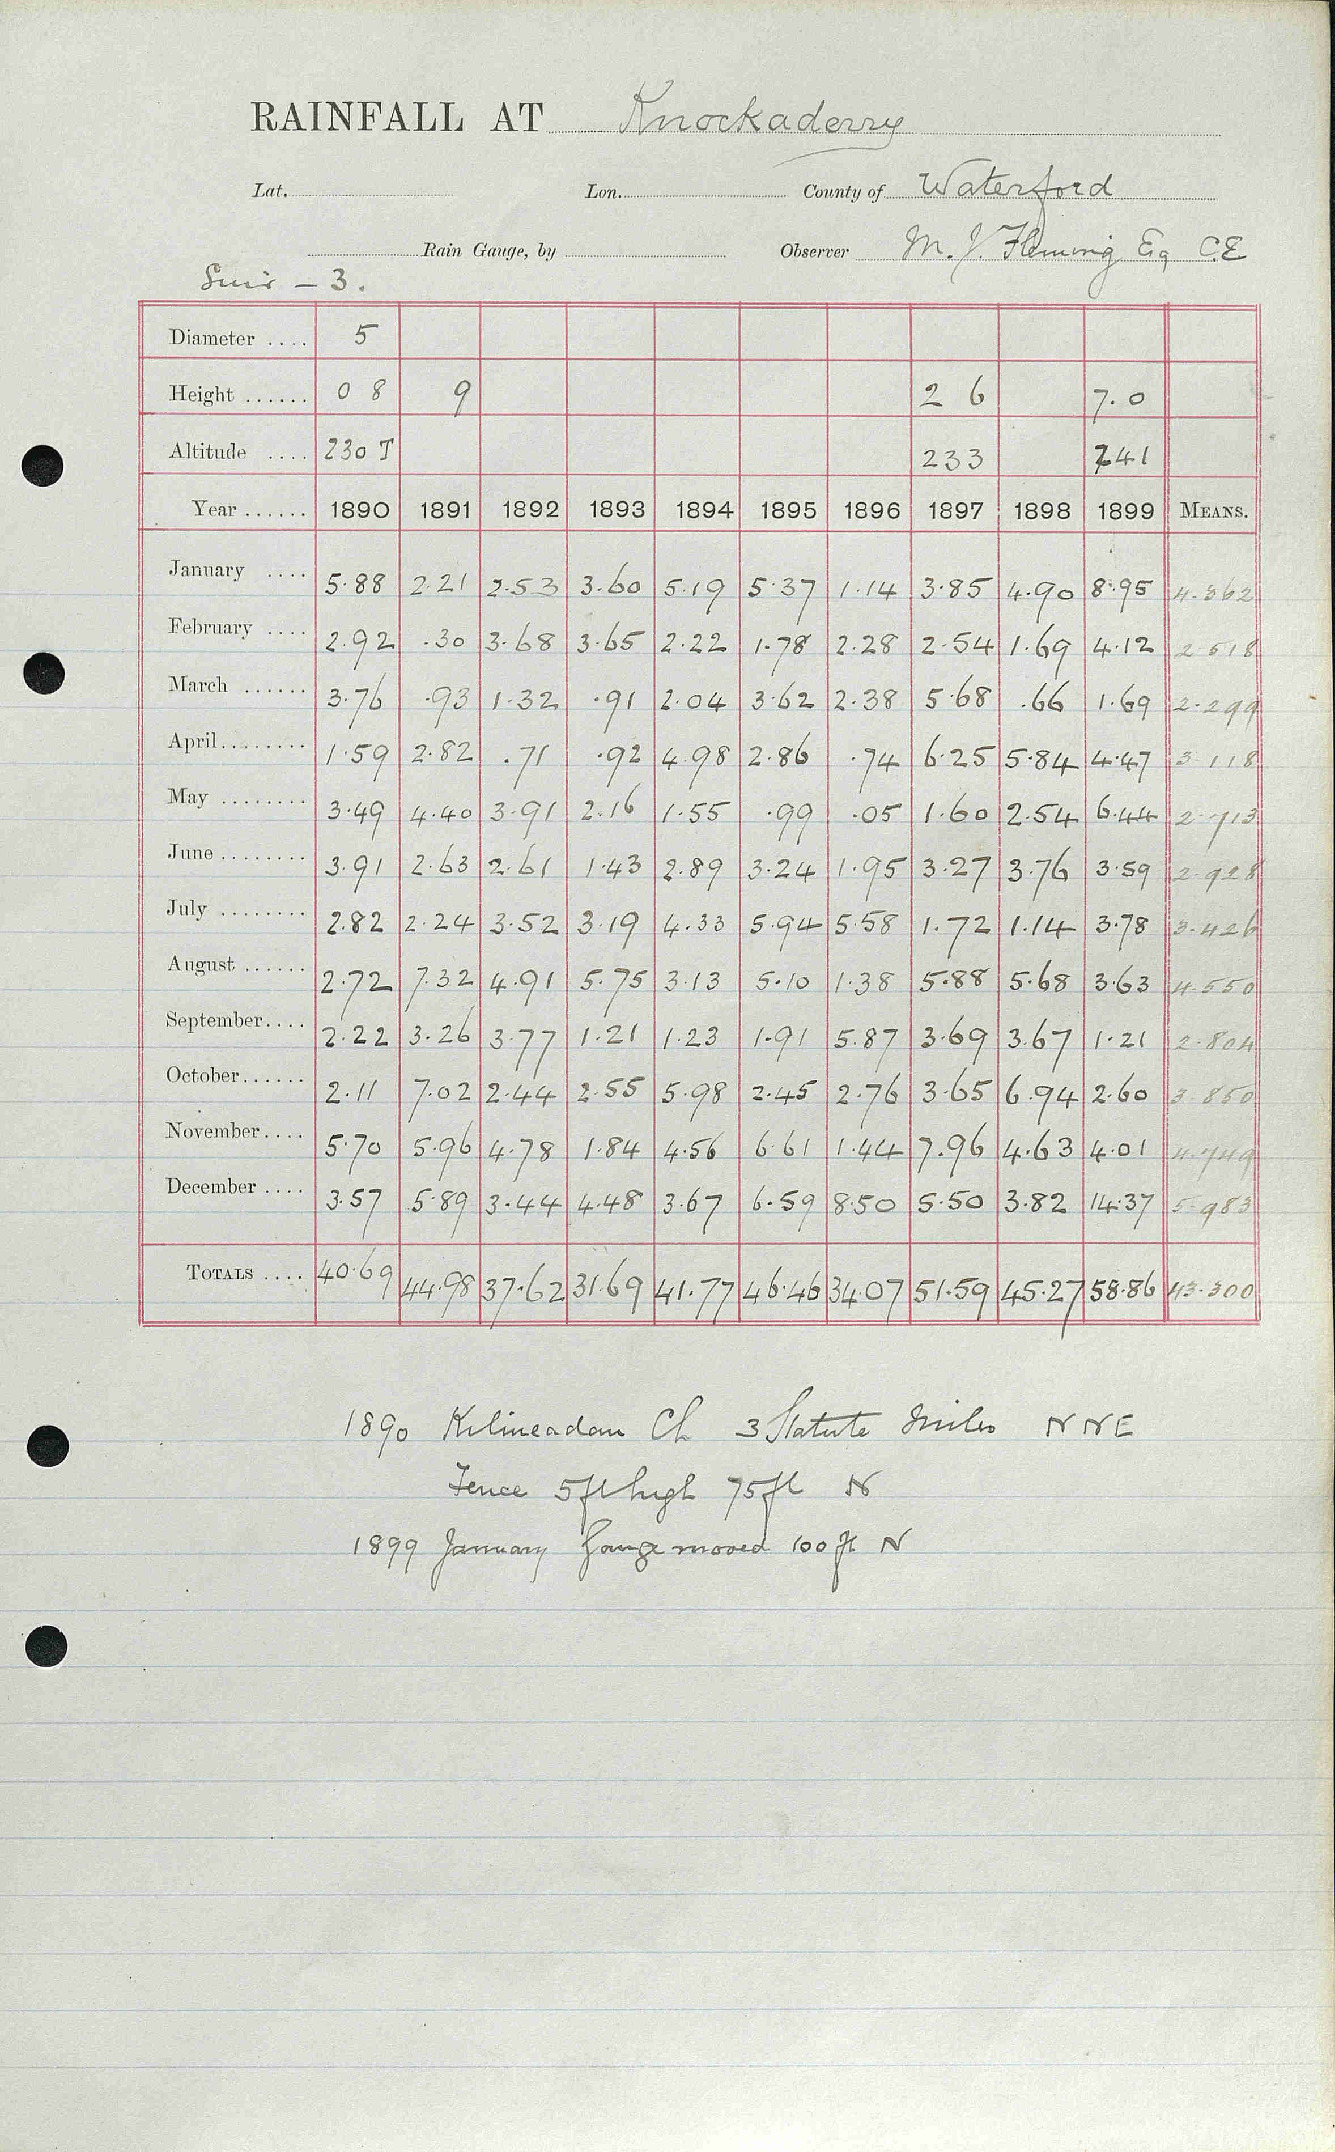 RAINFALL AT Knockaderry
Lat. Lon. County of Waterford
Rain Gauge, by Observer M. J. Fleming Esq C.E
Suir - 3.
Diameter .... 5
Height ...... 0 8 9 2 6 7.0
Altitude .... 230 T 233 241
Year ...... 1890 1891 1892 1893 1894 1895 1896 1897 1898 1899 MEANS.
January .... 5.88 2.21 2.53 3.60 5.19 5.37 1.14 3.85 4.90 8.95 4.362
February .... 2.92 .30 3.68 3.65 2.22 1.78 2.28 2.54 1.69 4.12 2.518
March ...... 3.76 .93 1.32 .91 2.04 3.62 2.38 5.68 .66 1.69 2.299
April........ 1.59 2.82 .71 .92 4.98 2.86 .74 6.25 5.84 4.47 3.118
May ........ 3.49 4.40 3.91 2.16 1.55 .99 .05 1.60 2.54 6.44 2.713
June ........ 3.91 2.63 2.61 1.43 2.89 3.24 1.95 3.27 3.76 3.59 2.928
July ........ 2.82 2.24 3.52 3.19 4.33 5.94 5.58 1.72 1.14 3.78 3.426
August ...... 2.72 7.32 4.91 5.75 3.13 5.10 1.38 5.88 5.68 3.63 4.550
September.... 2.22 3.26 3.77 1.21 1.23 1.91 5.87 3.69 3.67 1.21 2.804
October...... 2.11 7.02 2.44 2.55 5.98 2.45 2.76 3.65 6.94 2.60 3.850
November.... 5.70 5.96 4.78 1.84 4.56 6.61 1.44 7.96 4.63 4.01 4.749
December .... 3.57 5.89 3.44 4.48 3.67 6.59 8.50 5.50 3.82 14.37 5.983
TOTALS .... 40.69 44.98 37.62 31.69 41.77 46.46 34.07 51.59 45.27 58.86 43.300
1890 Kilmeadan Ch 3 Statute Miles N N E
Fence 5ft high 75ft N
1899 January Gauge moved 100 ft N